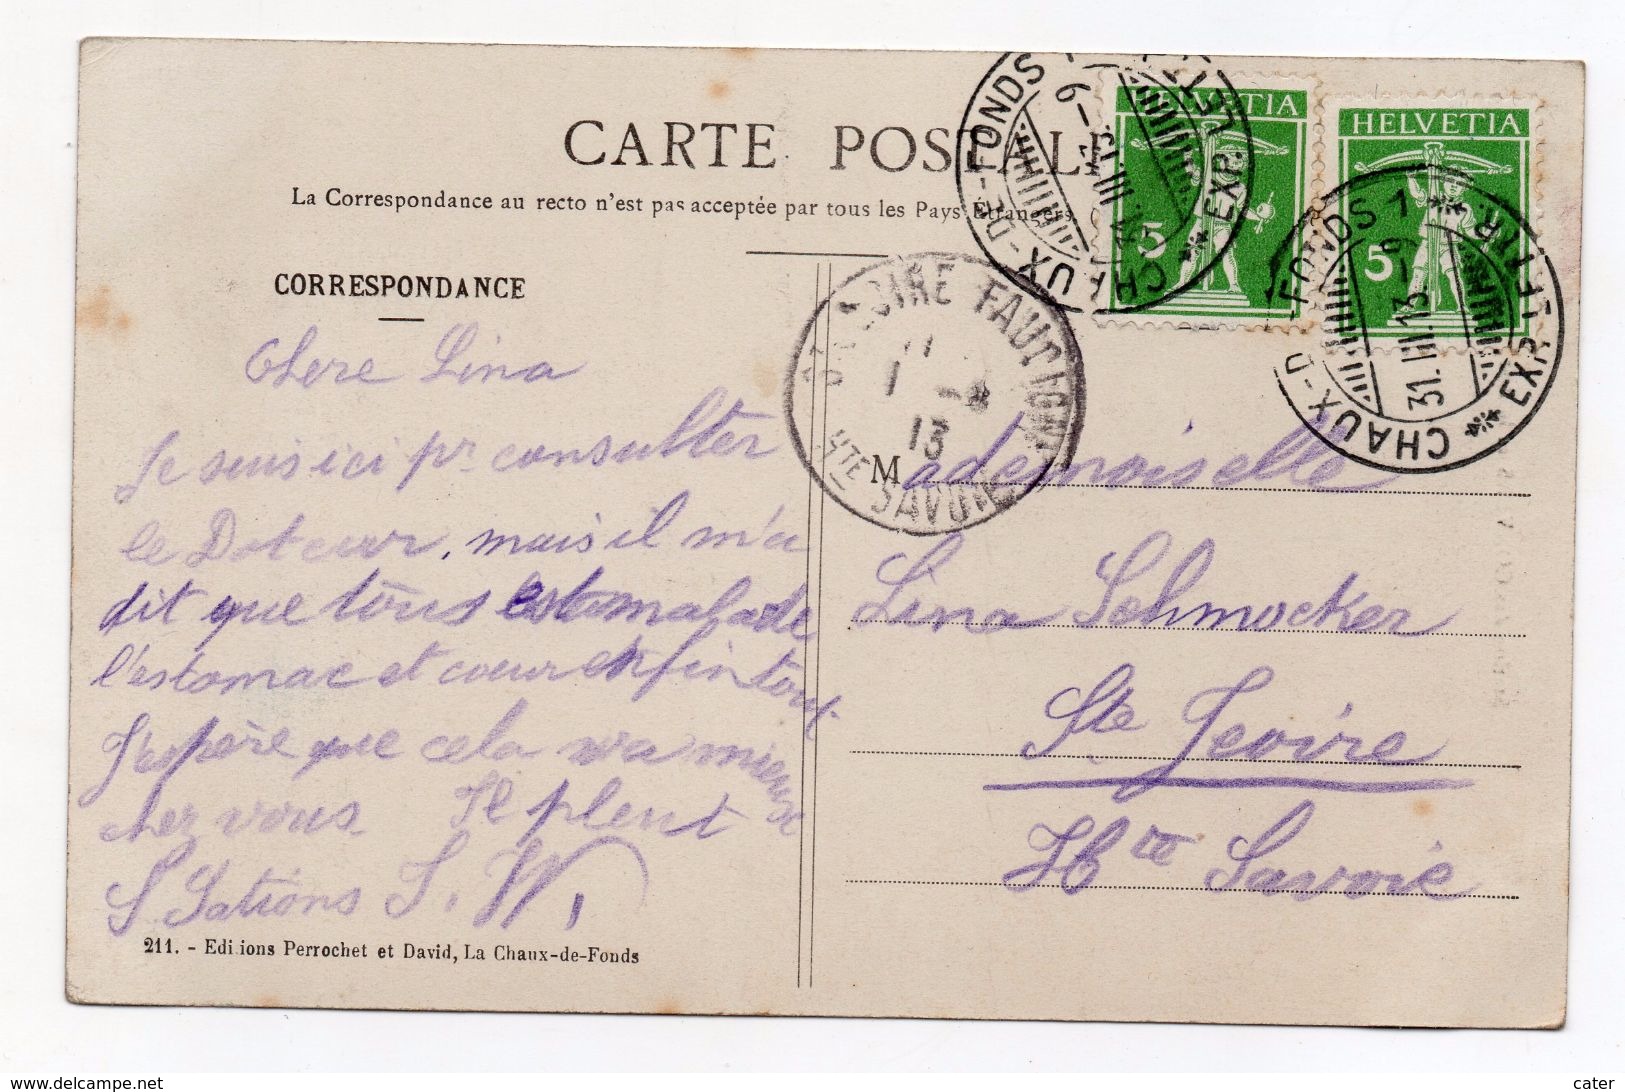 CARTE POSTALE
La Correspondance au recto n'est pas acceptée par tous les Pays Étrangers.
CORRESPONDANCE
Chere Lina
Je suis ici pr. consulter
le Docteur, mais il m'a
dit que tous est malade
l'estomac et cœur enfin tout.
J'espère que cela va mieux
cher vous Il plent
S. W.
211. - Editions Perrochet et David, La Chaux-de-Fonds
HELVETIA
5
HELVETIA
5
CHAUX-DE-FONDS 1
EXP. LETTR.
31.III.13.-9
CHAUX-DE-FONDS 1
EXP. LETTR.
31.III.13.-9
ST JEOIRE FAUCIGNY
13
HTE SAVOIE
Mademoiselle
Lina Schmocker
Ste Jeoire
Hte Savoie
https://www.delcampe.net
cater